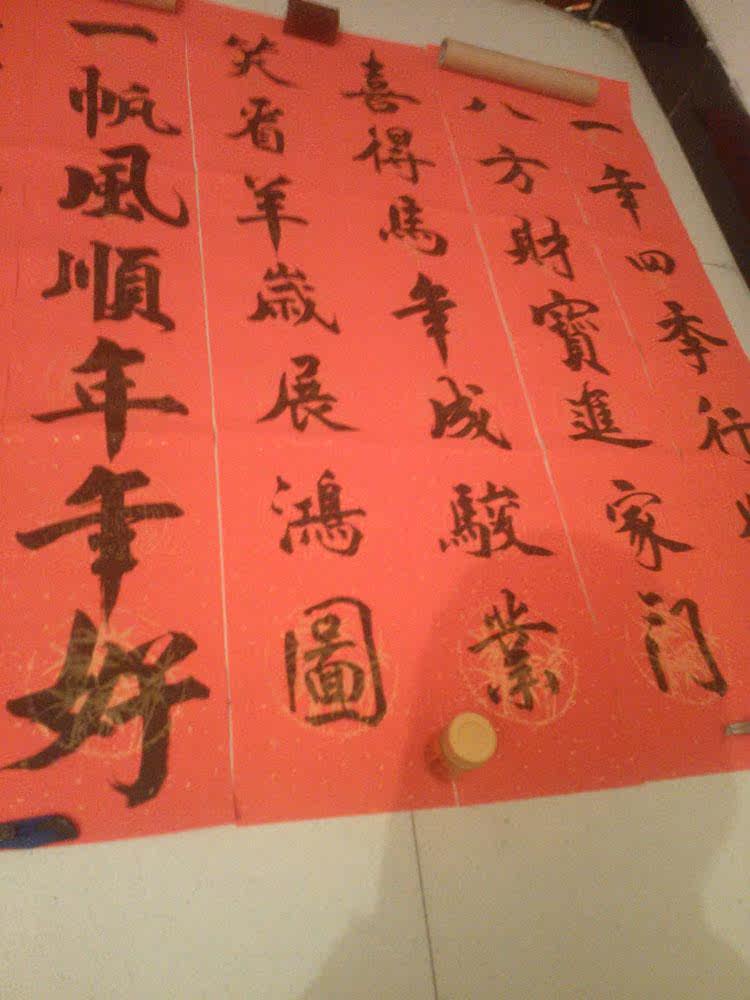 一年四季行
八方財寶進家门
喜得馬年成駿業
笑看羊歲展鴻圖
一帆風順年年好